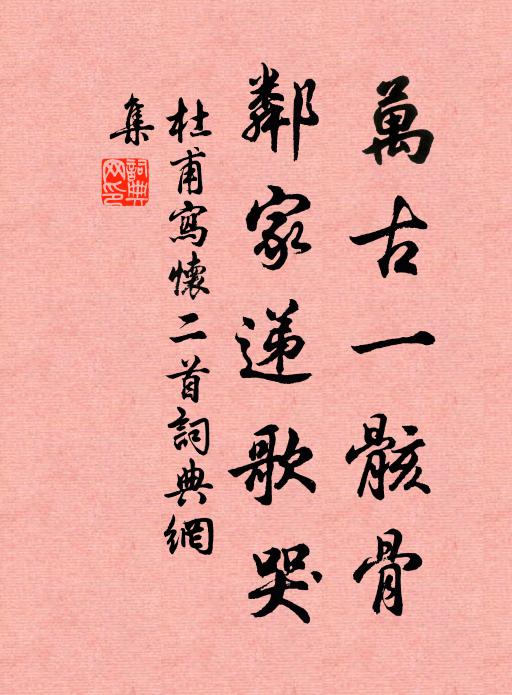 萬古一骸骨
鄰家遞歌哭
杜甫寫懷二首詞典網
集
詞典網印